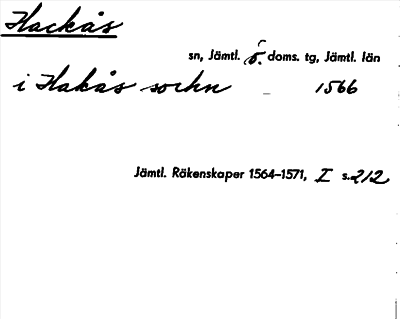 Hackås
sn, Jämtl. ö. doms. tg, Jämtl. län
i Hakås sochn – 1566
Jämtl. Räkenskaper 1564–1571, I s. 212